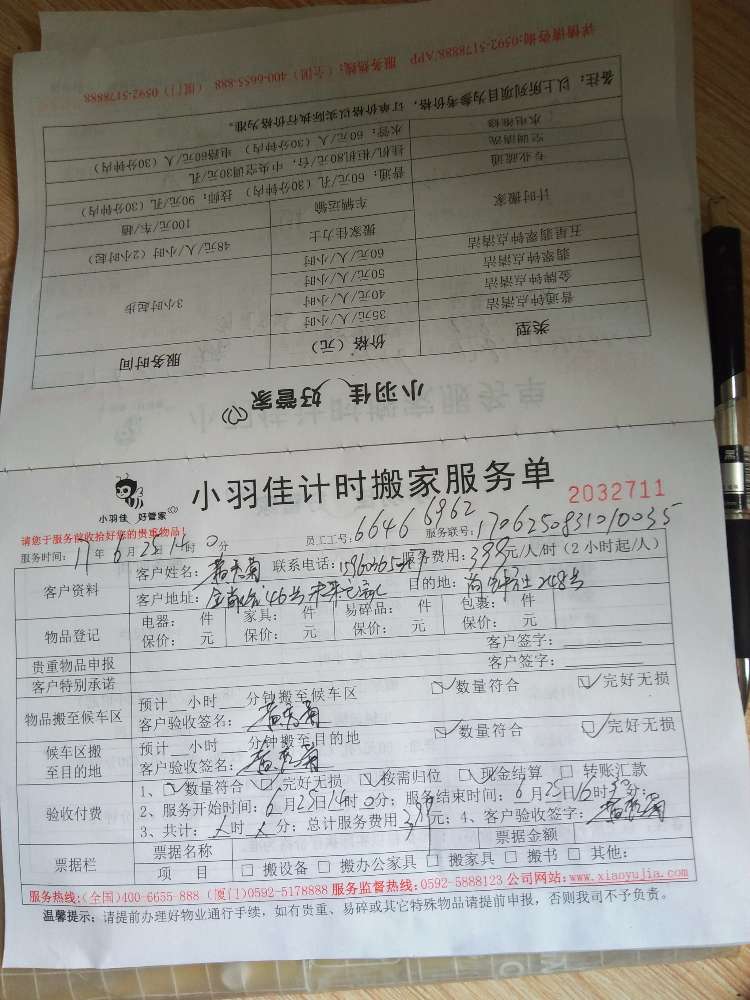 小羽佳 好管家
类型 价格（元） 服务时间
普通钟点清洁 35元/人/小时 3小时起步
金牌钟点清洁 40元/人/小时
翡翠钟点清洁 50元/人/小时
五星翡翠钟点清洁 60元/人/小时
计时搬家 搬家佳力士 48元/人/小时（2小时起）
车辆运输 100元/车/趟
专业疏通 普通：60元/孔（30分钟内） 技师：90元/孔（30分钟内）
空调清洗 挂机/柜机80元/台，中央空调30元/孔
水电维修 水管：60元/人（30分钟内） 电路60元/人（30分钟内）
备注：以上所列项目为参考价格，订单价格以实际执行价格为准。
详情咨询:0592-5178888/APP 服务热线：（全国）400-6655-888 （厦门）0592-5178888
小羽佳 好管家
小羽佳计时搬家服务单
2032711
请您于服务前收拾好您的贵重物品！
员工工号：6646 6962 服务联号：
服务时间： 年6月25日14时0分
客户资料 客户姓名： 联系电话： 服务费用：399元/人/时（2小时起/人）
客户地址： 目的地： 248号
物品登记 电器： 件 家具： 件 易碎品： 件 包裹： 件
保价： 元 保价： 元 保价： 元 保价： 元
贵重物品申报 客户签字：
客户特别承诺 客户签字：
物品搬至候车区 预计 小时 分钟搬至候车区 ☑数量符合 ☑完好无损
客户验收签名：
候车区搬至目的地 预计 小时 分钟搬至目的地 ☑数量符合 ☑完好无损
客户验收签名：
验收付费 1、☑数量符合 ☑完好无损 ☑按需归位 ☑现金结算 □转账汇款
2、服务开始时间：6月25日14时0分；服务结束时间：6月25日16时30分；
3、共计： 时 分；总计服务费用399元；4、客户验收签字：
票据栏 票据名称 票据金额
项 目 □搬设备 □搬办公家具 □搬家具 □搬书 □其他：
服务热线:(全国)400-6655-888 (厦门)0592-5178888 服务监督热线:0592-5888123 公司网站:www.xiaoyujia.com
温馨提示：请提前办理好物业通行手续，如有贵重、易碎或其它特殊物品请提前申报，否则我司不予负责。